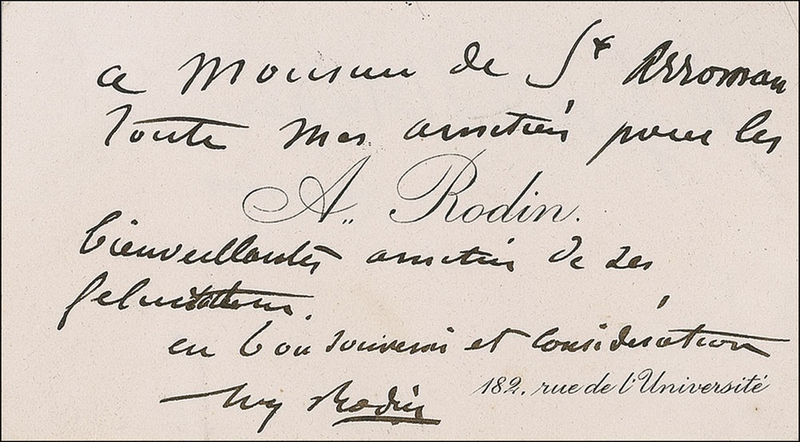 a Monsieur de St Arroman
toute mes amitiés pour les
A. Rodin.
bienveillantes amitiés de ses
felicitations.
en bon souvenir et considération
182, rue de l'Université
Aug Rodin